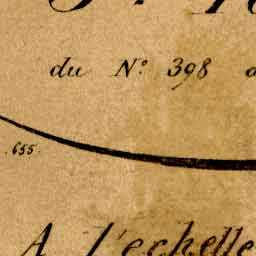 du N.° 398
655.
A l'echelle